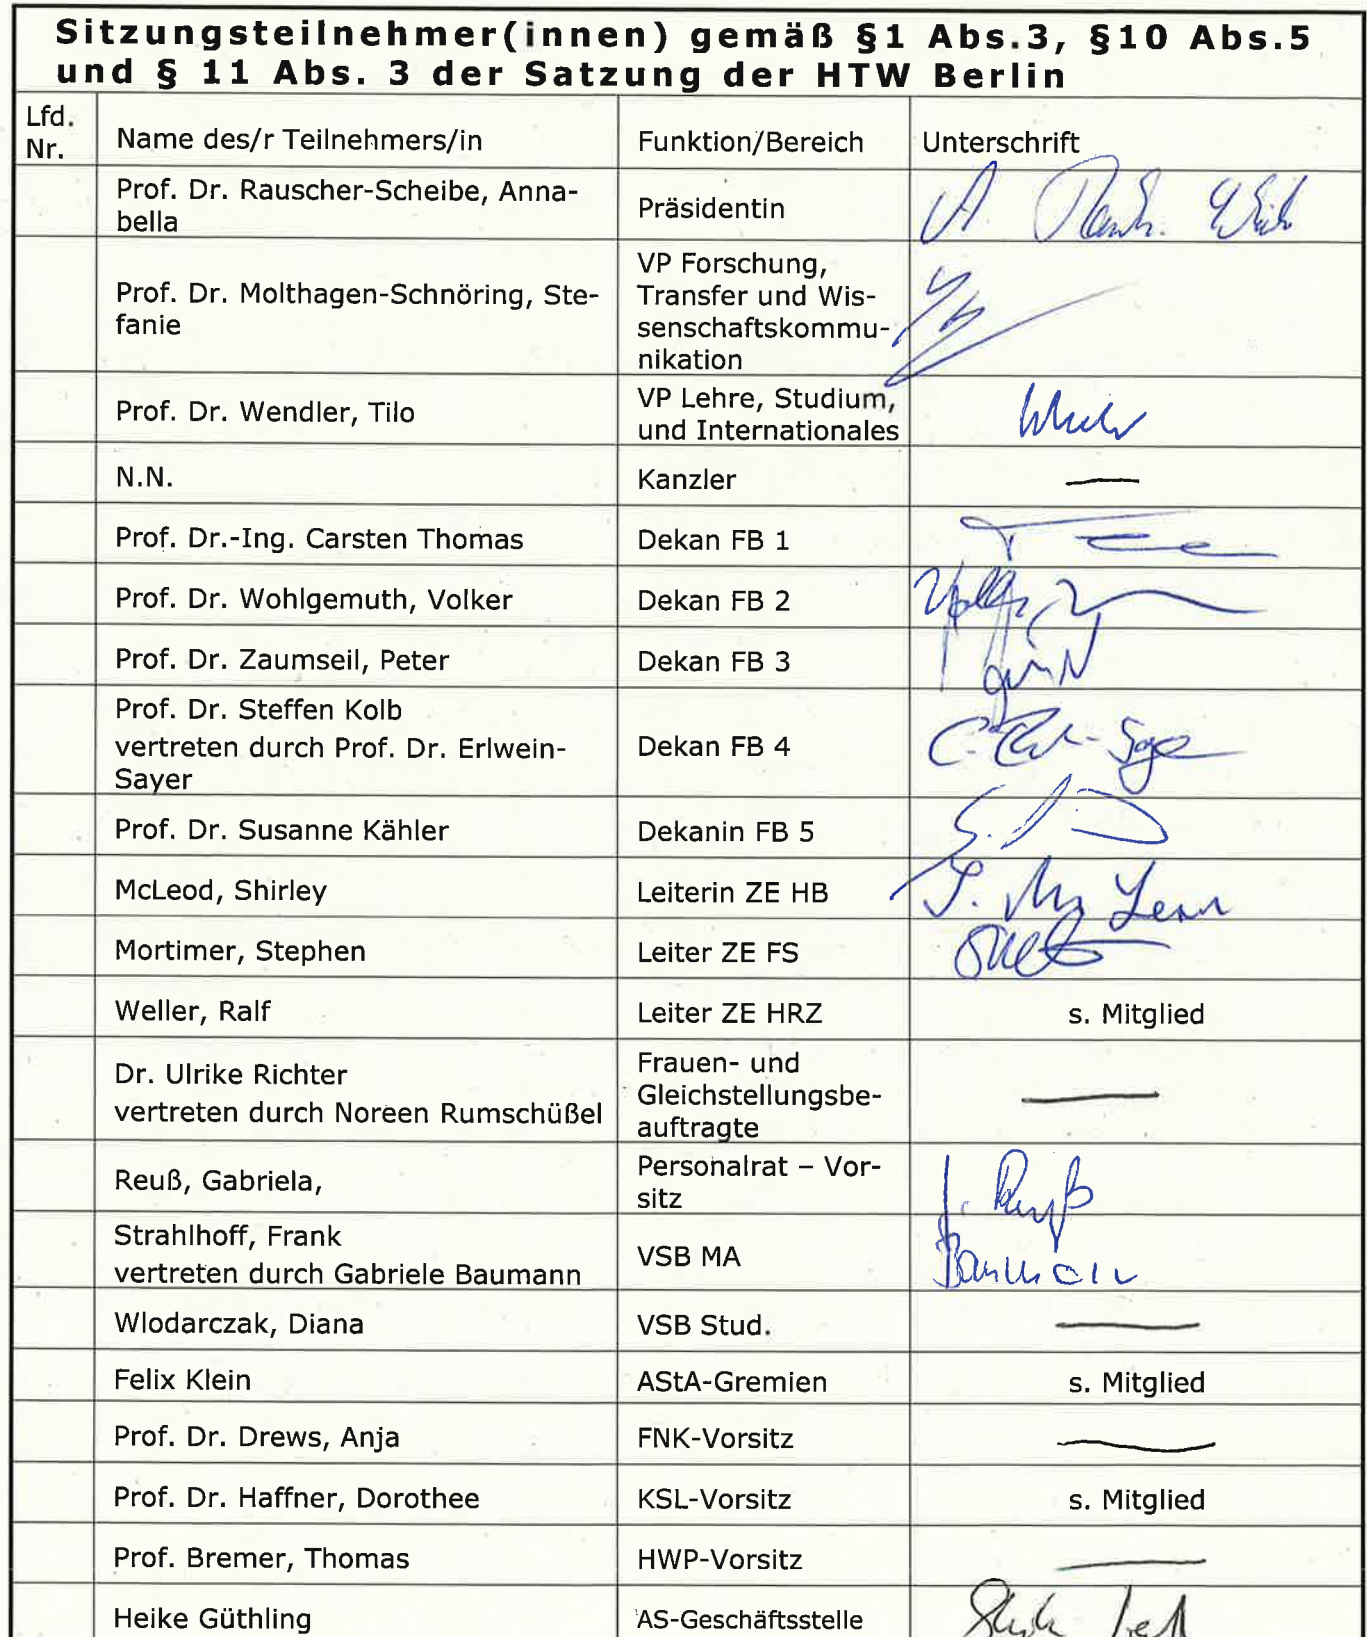 Sitzungsteilnehmer(innen) gemäß §1 Abs.3, §10 Abs.5
und § 11 Abs. 3 der Satzung der HTW Berlin
Lfd.
Nr.
Name des/r Teilnehmers/in
Funktion/Bereich
Unterschrift
Prof. Dr. Rauscher-Scheibe, Anna-
bella
Präsidentin
Prof. Dr. Molthagen-Schnöring, Ste-
fanie
VP Forschung,
Transfer und Wis-
senschaftskommu-
nikation
Prof. Dr. Wendler, Tilo
VP Lehre, Studium,
und Internationales
N.N.
Kanzler
Prof. Dr.-Ing. Carsten Thomas
Dekan FB 1
Prof. Dr. Wohlgemuth, Volker
Dekan FB 2
Prof. Dr. Zaumseil, Peter
Dekan FB 3
Prof. Dr. Steffen Kolb
vertreten durch Prof. Dr. Erlwein-
Sayer
Dekan FB 4
Prof. Dr. Susanne Kähler
Dekanin FB 5
McLeod, Shirley
Leiterin ZE HB
Mortimer, Stephen
Leiter ZE FS
Weller, Ralf
Leiter ZE HRZ
s. Mitglied
Dr. Ulrike Richter
vertreten durch Noreen Rumschüßel
Frauen- und
Gleichstellungsbe-
auftragte
Reuß, Gabriela,
Personalrat – Vor-
sitz
Strahlhoff, Frank
vertreten durch Gabriele Baumann
VSB MA
Baumann
Wlodarczak, Diana
VSB Stud.
Felix Klein
AStA-Gremien
s. Mitglied
Prof. Dr. Drews, Anja
FNK-Vorsitz
Prof. Dr. Haffner, Dorothee
KSL-Vorsitz
s. Mitglied
Prof. Bremer, Thomas
HWP-Vorsitz
Heike Güthling
AS-Geschäftsstelle